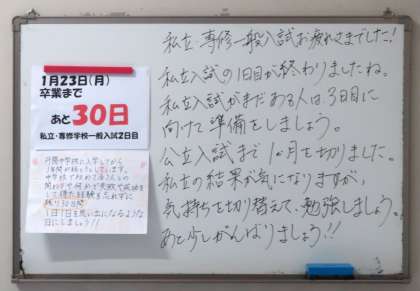 1月23日(月)
卒業まで
あと30日
私立・専修学校一般入試2日目
1日1日を思い出になるような
日にしましょう!!
私立・専修一般入試お疲れさまでした!
私立入試の1日目が終わりましたね。
私立入試がまだある人は、3日目に
向けて準備をしましょう。
公立入試まで1ヶ月を切りました。
私立の結果が気になりますが、
気持ちを切り替えて、勉強しましょう。
あと少しがんばりましょう!!